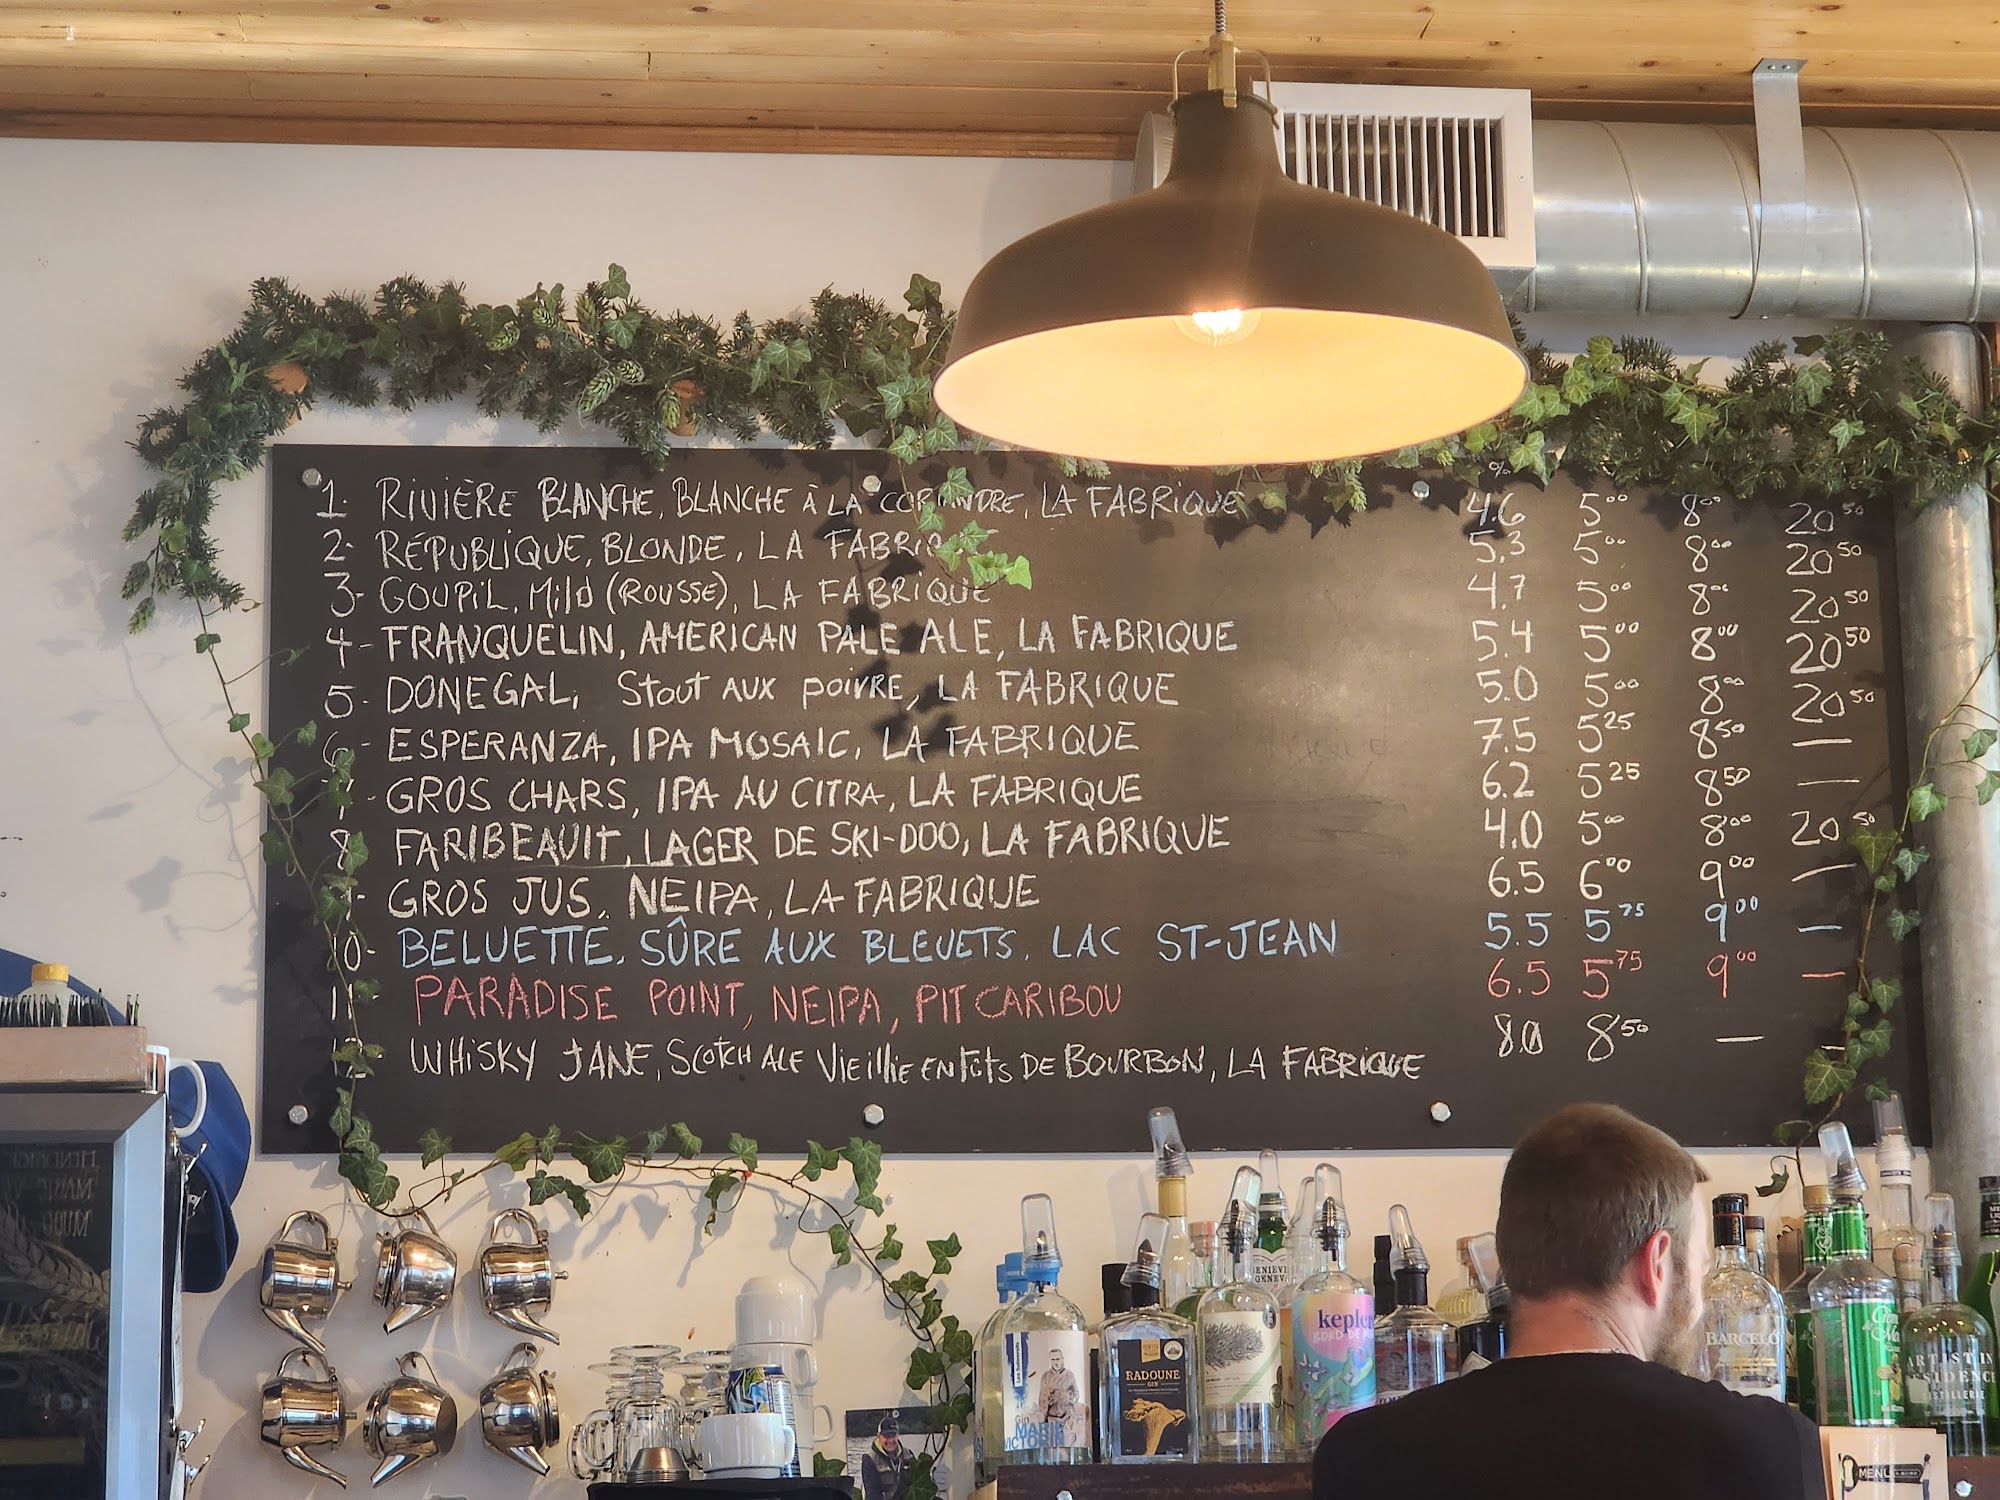 %
1. RIVIÈRE BLANCHE, BLANCHE À LA CORIANDRE, LA FABRIQUE 4.6 5⁰⁰ 8⁰⁰ 20⁵⁰
2- RÉPUBLIQUE, BLONDE, LA FABRIQUE 5.3 5⁰⁰ 8⁰⁰ 20⁵⁰
3- GOUPIL, Mild (ROUSSE), LA FABRIQUE 4.7 5⁰⁰ 8⁰⁰ 20⁵⁰
4- FRANQUELIN, AMERICAN PALE ALE, LA FABRIQUE 5.4 5⁰⁰ 8⁰⁰ 20⁵⁰
5- DONEGAL, Stout AUX POIVRE, LA FABRIQUE 5.0 5⁰⁰ 8⁰⁰ 20⁵⁰
6- ESPERANZA, IPA MOSAIC, LA FABRIQUE 7.5 5²⁵ 8⁵⁰ —
7- GROS CHARS, IPA AU CITRA, LA FABRIQUE 6.2 5²⁵ 8⁵⁰ —
8- FARIBEAUIT, LAGER DE SKI-DOO, LA FABRIQUE 4.0 5⁰⁰ 8⁰⁰ 20⁵⁰
9- GROS JUS, NEIPA, LA FABRIQUE 6.5 6⁰⁰ 9⁰⁰ —
10- BELUETTE, SÛRE AUX BLEUETS, LAC ST-JEAN 5.5 5⁷⁵ 9⁰⁰ —
11- PARADISE POINT, NEIPA, PIT CARIBOU 6.5 5⁷⁵ 9⁰⁰ —
12- WHISKY JANE, SCOTCH ALE VIEILLIE EN FÛTS DE BOURBON, LA FABRIQUE 8.0 8⁵⁰ — —
RADOUNE
GIN
kepler
BORD DE
BARCELÓ
ARTIST IN
RESIDENCE
DISTILLERIE
MENU